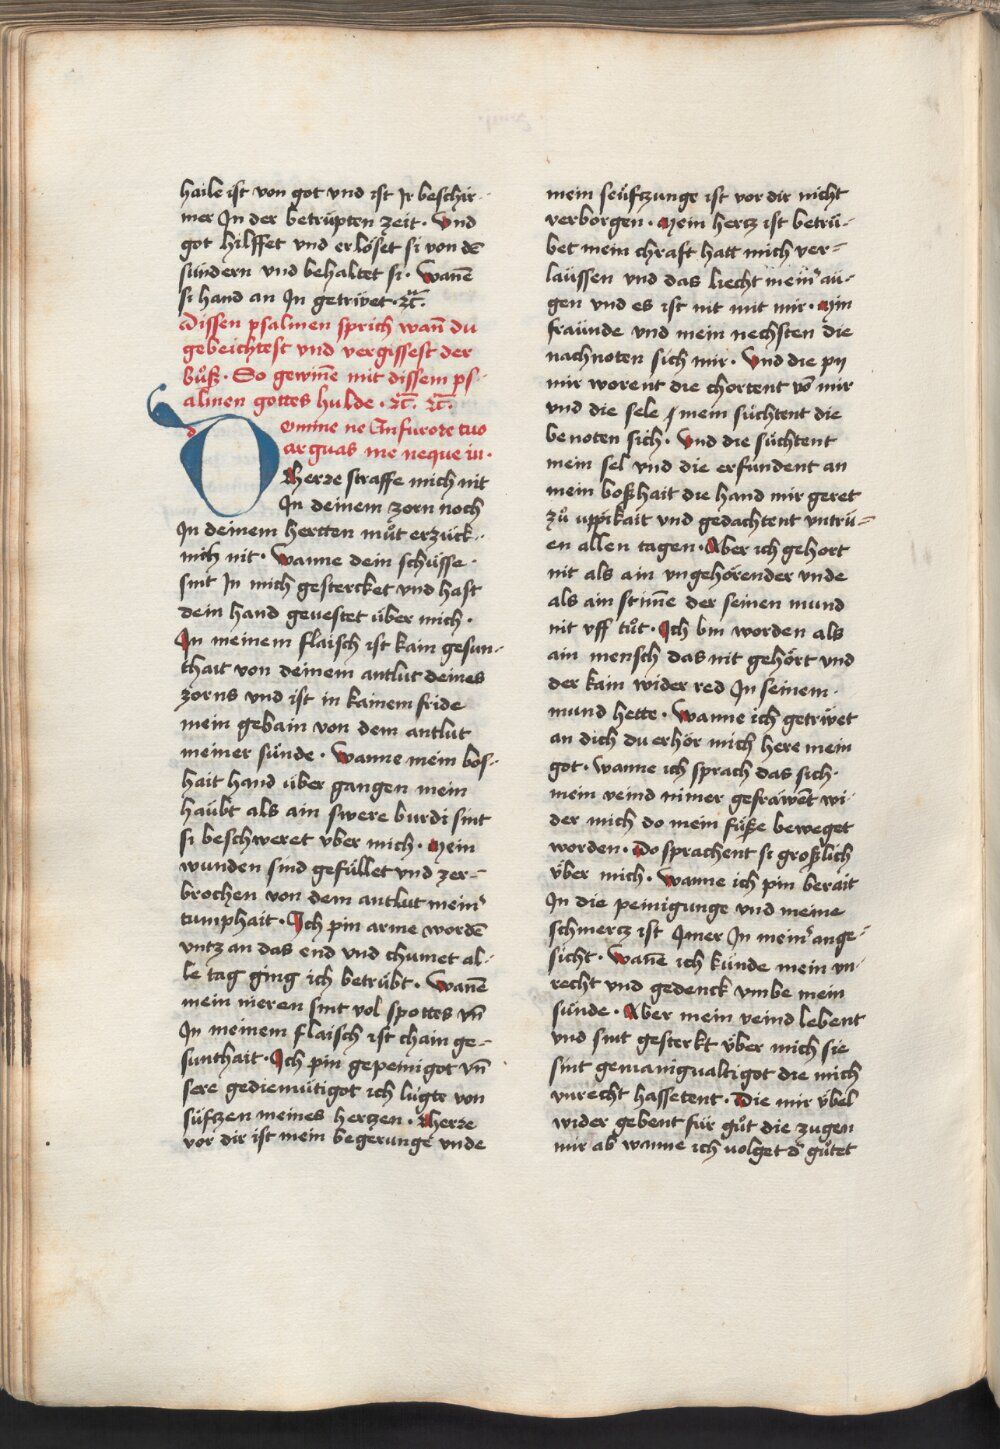 haile ist von got vnd ist Ir beschir-
mer In der betrüpten zeit · Vnd
got hilffet vnd erlöset si von dē
sündern vnd behaltet si · Wañe
si hand an In getrüwet · ꝛc̄ ·
Dissen psalmen sprich wañ du
gebeichtest vnd vergissest der
bůß · So gewiñe mit dissem ps-
almen gottes hulde · ꝛc̄ · ꝛc̄ ·
Domine ne Infurore tuo
arguas me neque in ·
Herre straffe mich nit
In deinem zorn noch
In deinem hertten můt erzück-
mich nit · Wanne dein schüsse ·
sint In mich gestercket vnd hast
dein hand geuestet über mich ·
In meinem flaisch ist kain gesun-
thait von deinem antlut deines
zorns vnd ist in kainem fride
mein gebain von dem antlut
meiner sünde · Wanne mein bos-
hait hand über gangen mein
haübt als ain swere burdi sint
si beschweret vber mich · Mein
wunden sind gefüllet vnd zer-
brochen von dem antlut mein᾿
tumphait · Ich pin arme wordē
vntz an das end vnd chumet al-
le tag ging ich betrübt · Wañe
mein nieren sint vol spottes vn̄
In meinem flaisch ist chain ge-
sunthait · Ich pin gepeinigot vn̄
sere gediemütigot ich lügte von
süfczen meines hertzen · Herre
vor dir ist mein begerunge vnde
mein seüfczunge ist vor dir nicht
verborgen · Mein hercz ist betrü-
bet mein chraft hatt mich ver-
laüssen vnd das liecht mein᾿ au-
gen vnd es ist nit mit mir · Min
fraünde vnd mein nechsten die
nachnoten sich mir · Vnd die pij
mir worent die chortent vō mir
vnd die sele mein süchtent die
benoten sich · Vnd die süchtent
mein sel vnd die erfundent an
mein boßhait die hand mir geret
zů üppikait vnd gedachtent vntrü-
en allen tagen · Aber ich gehort
nit als ain vngehörender vnde
als ain stim̄e der seinen mund
nit vff tůt · Ich bin worden als
ain mensch das nit gehört vnd
der kain wider red In seinem ·
mund hette · Wanne ich getrüwet
an dich du erhör mich here mein
got · wanne ich sprach das sich ·
mein veind nimer gefräwēt wi-
der mich do mein füße beweget
worden · Do sprachent si großlich
über mich · Wanne ich pin berait
In die peinigunge vnd meine
schmercz ist Imer In mein᾿ ange-
sicht · Wañe ich künde mein vn-
recht vnd gedenck vmbe mein
sünde · Aber mein veind lebent
vnd sint gesterkt über mich sie
sint gemanigualtigot die mich
vnrecht hassetent · Die mir übel
wider gebent für gůt die zugen
mir ab wanne ich volget d᾿ gůtet